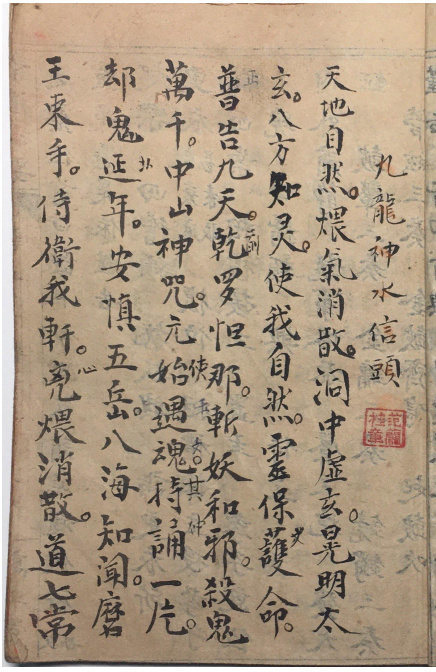 九龍神水信頭
天地自然。煨氣消散。洞中虛玄。晃明太
玄。八方知灵。使我自然。靈保護命。
普告九天。乾罗怛那。斬妖和邪。殺鬼
萬千。中山神咒。元始遇魂持誦一
却鬼延年。安慎五岳。八海知闻。磨
王束手。侍衛我軒。亮煨消散。道七常